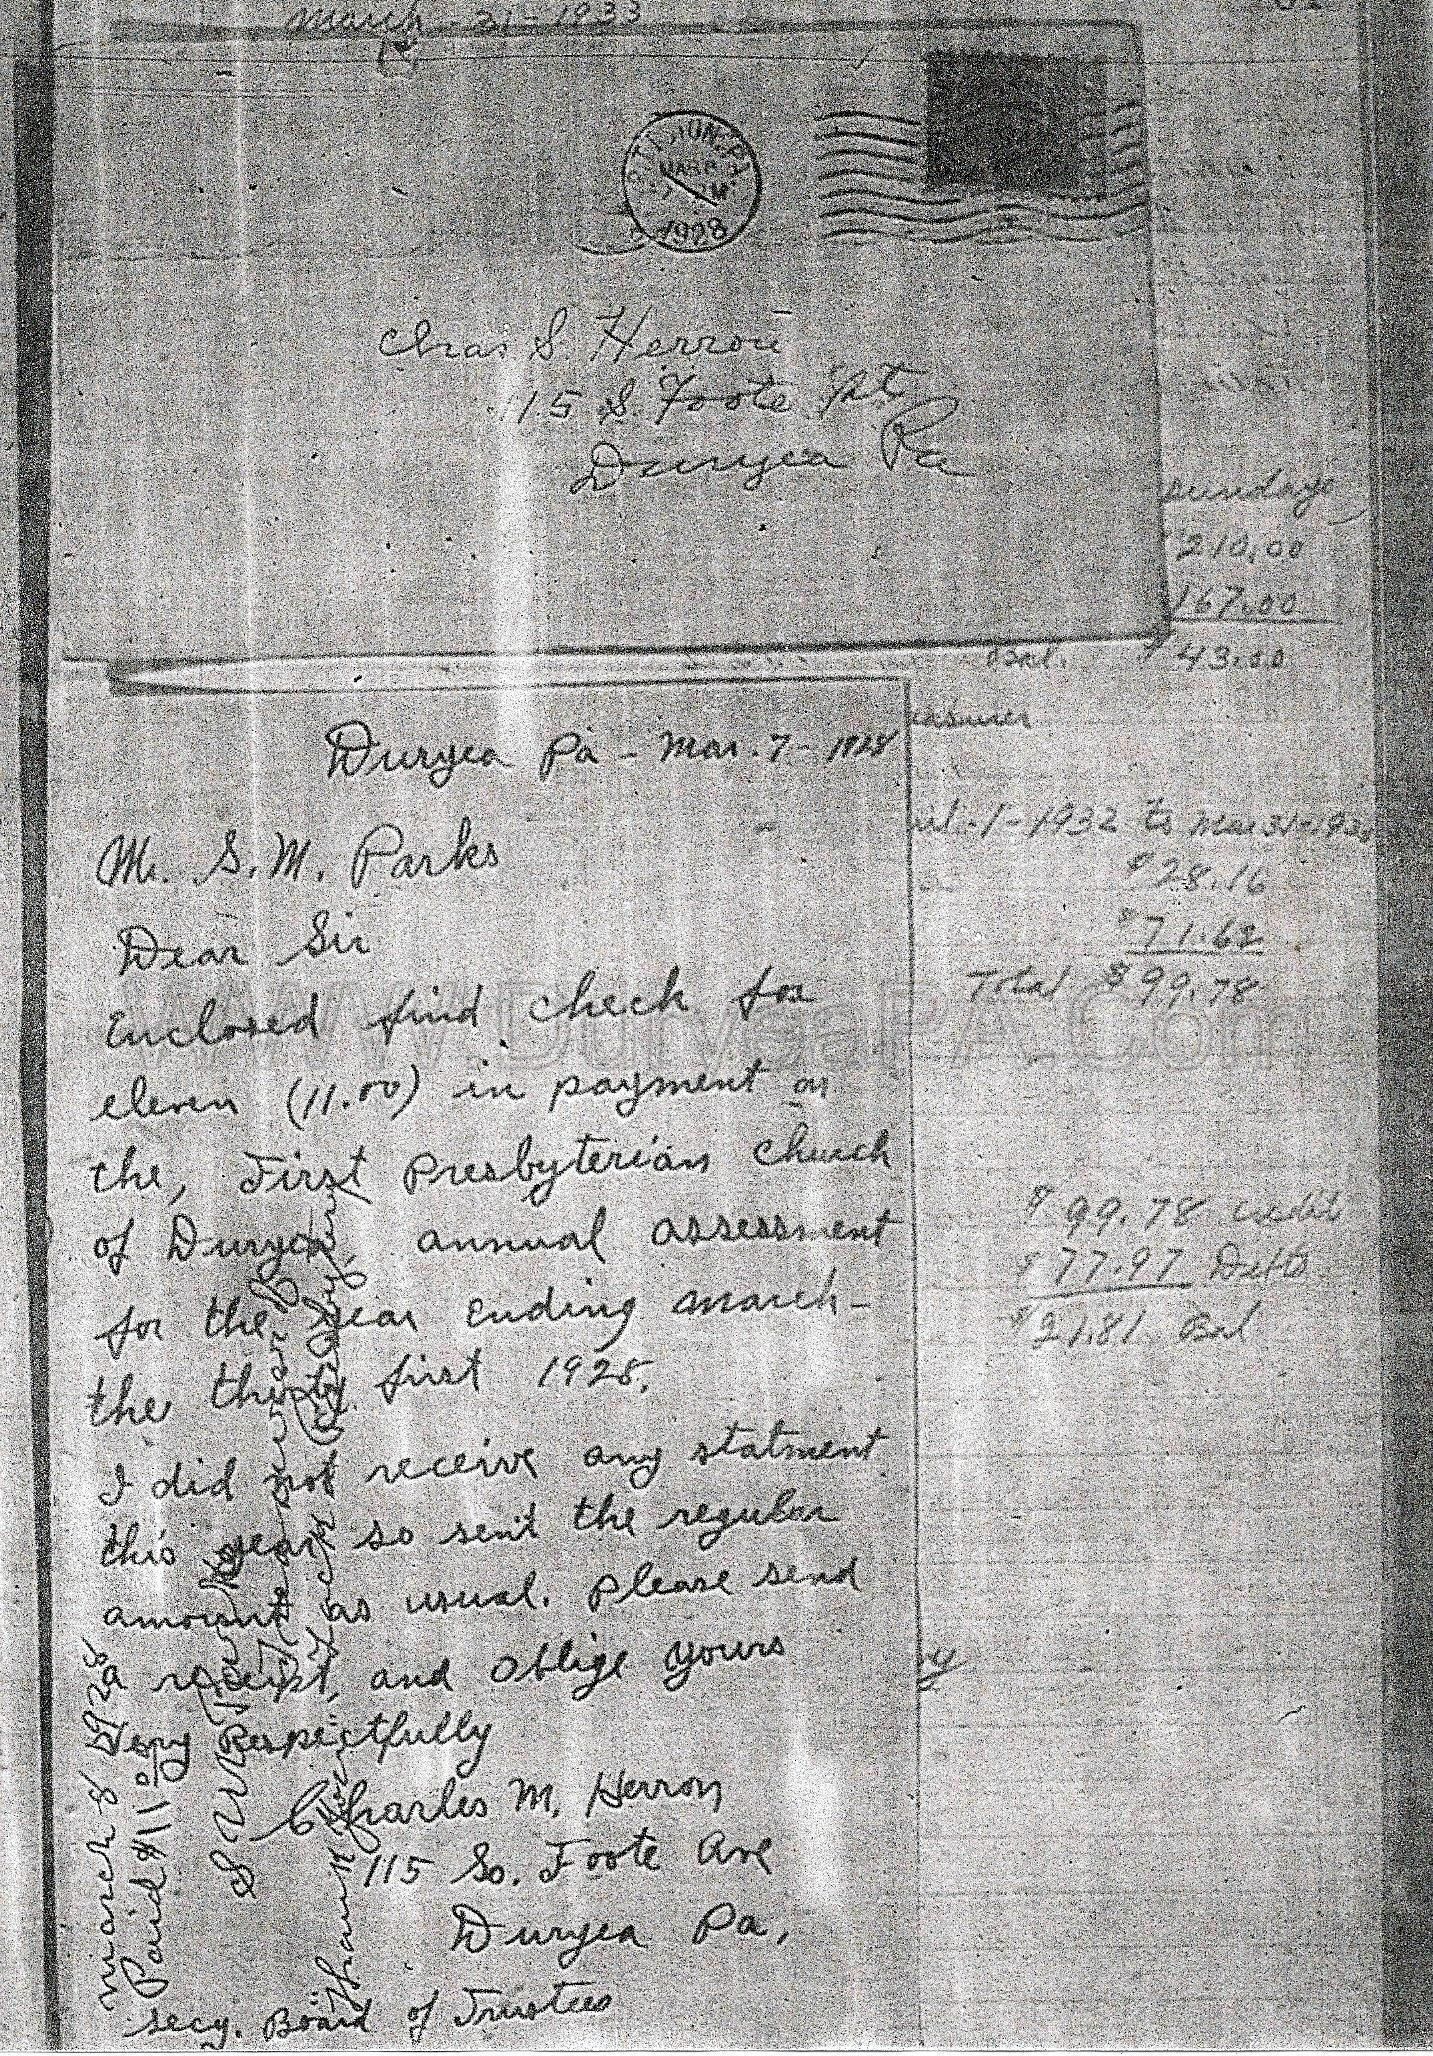 March - 31 - 1933
PITTSTON, PA.
MAR
1928
Chas S. Herron
115 S. Foote St.
Duryea Pa
Sundays
$210.00
167.00
Bal. $43.00
easurer
Duryea Pa - Mar. 7 - 1928
Mr. S. M. Parks
Dear Sir
Enclosed find check for
eleven (11.00) in payment on
the, First Presbyterian Church
of Duryea, annual assessment
for the year ending march -
the thirty first 1928.
I did not receive any statment
this year so sent the regular
amount as usual. Please send
a reciept, and oblige yours
Very Respectfully
Charles M. Herron
115 So. Foote Ave
Duryea Pa,
secy. Board of Trustees
march 8 1928
Paid $11.00
-1-1932 to Mar 31-193
$28.16
$71.62
Total $99.78
WWW.DuryeaPA.Com
$99.78 credit
$77.97 Debts
$21.81 Bal
ry